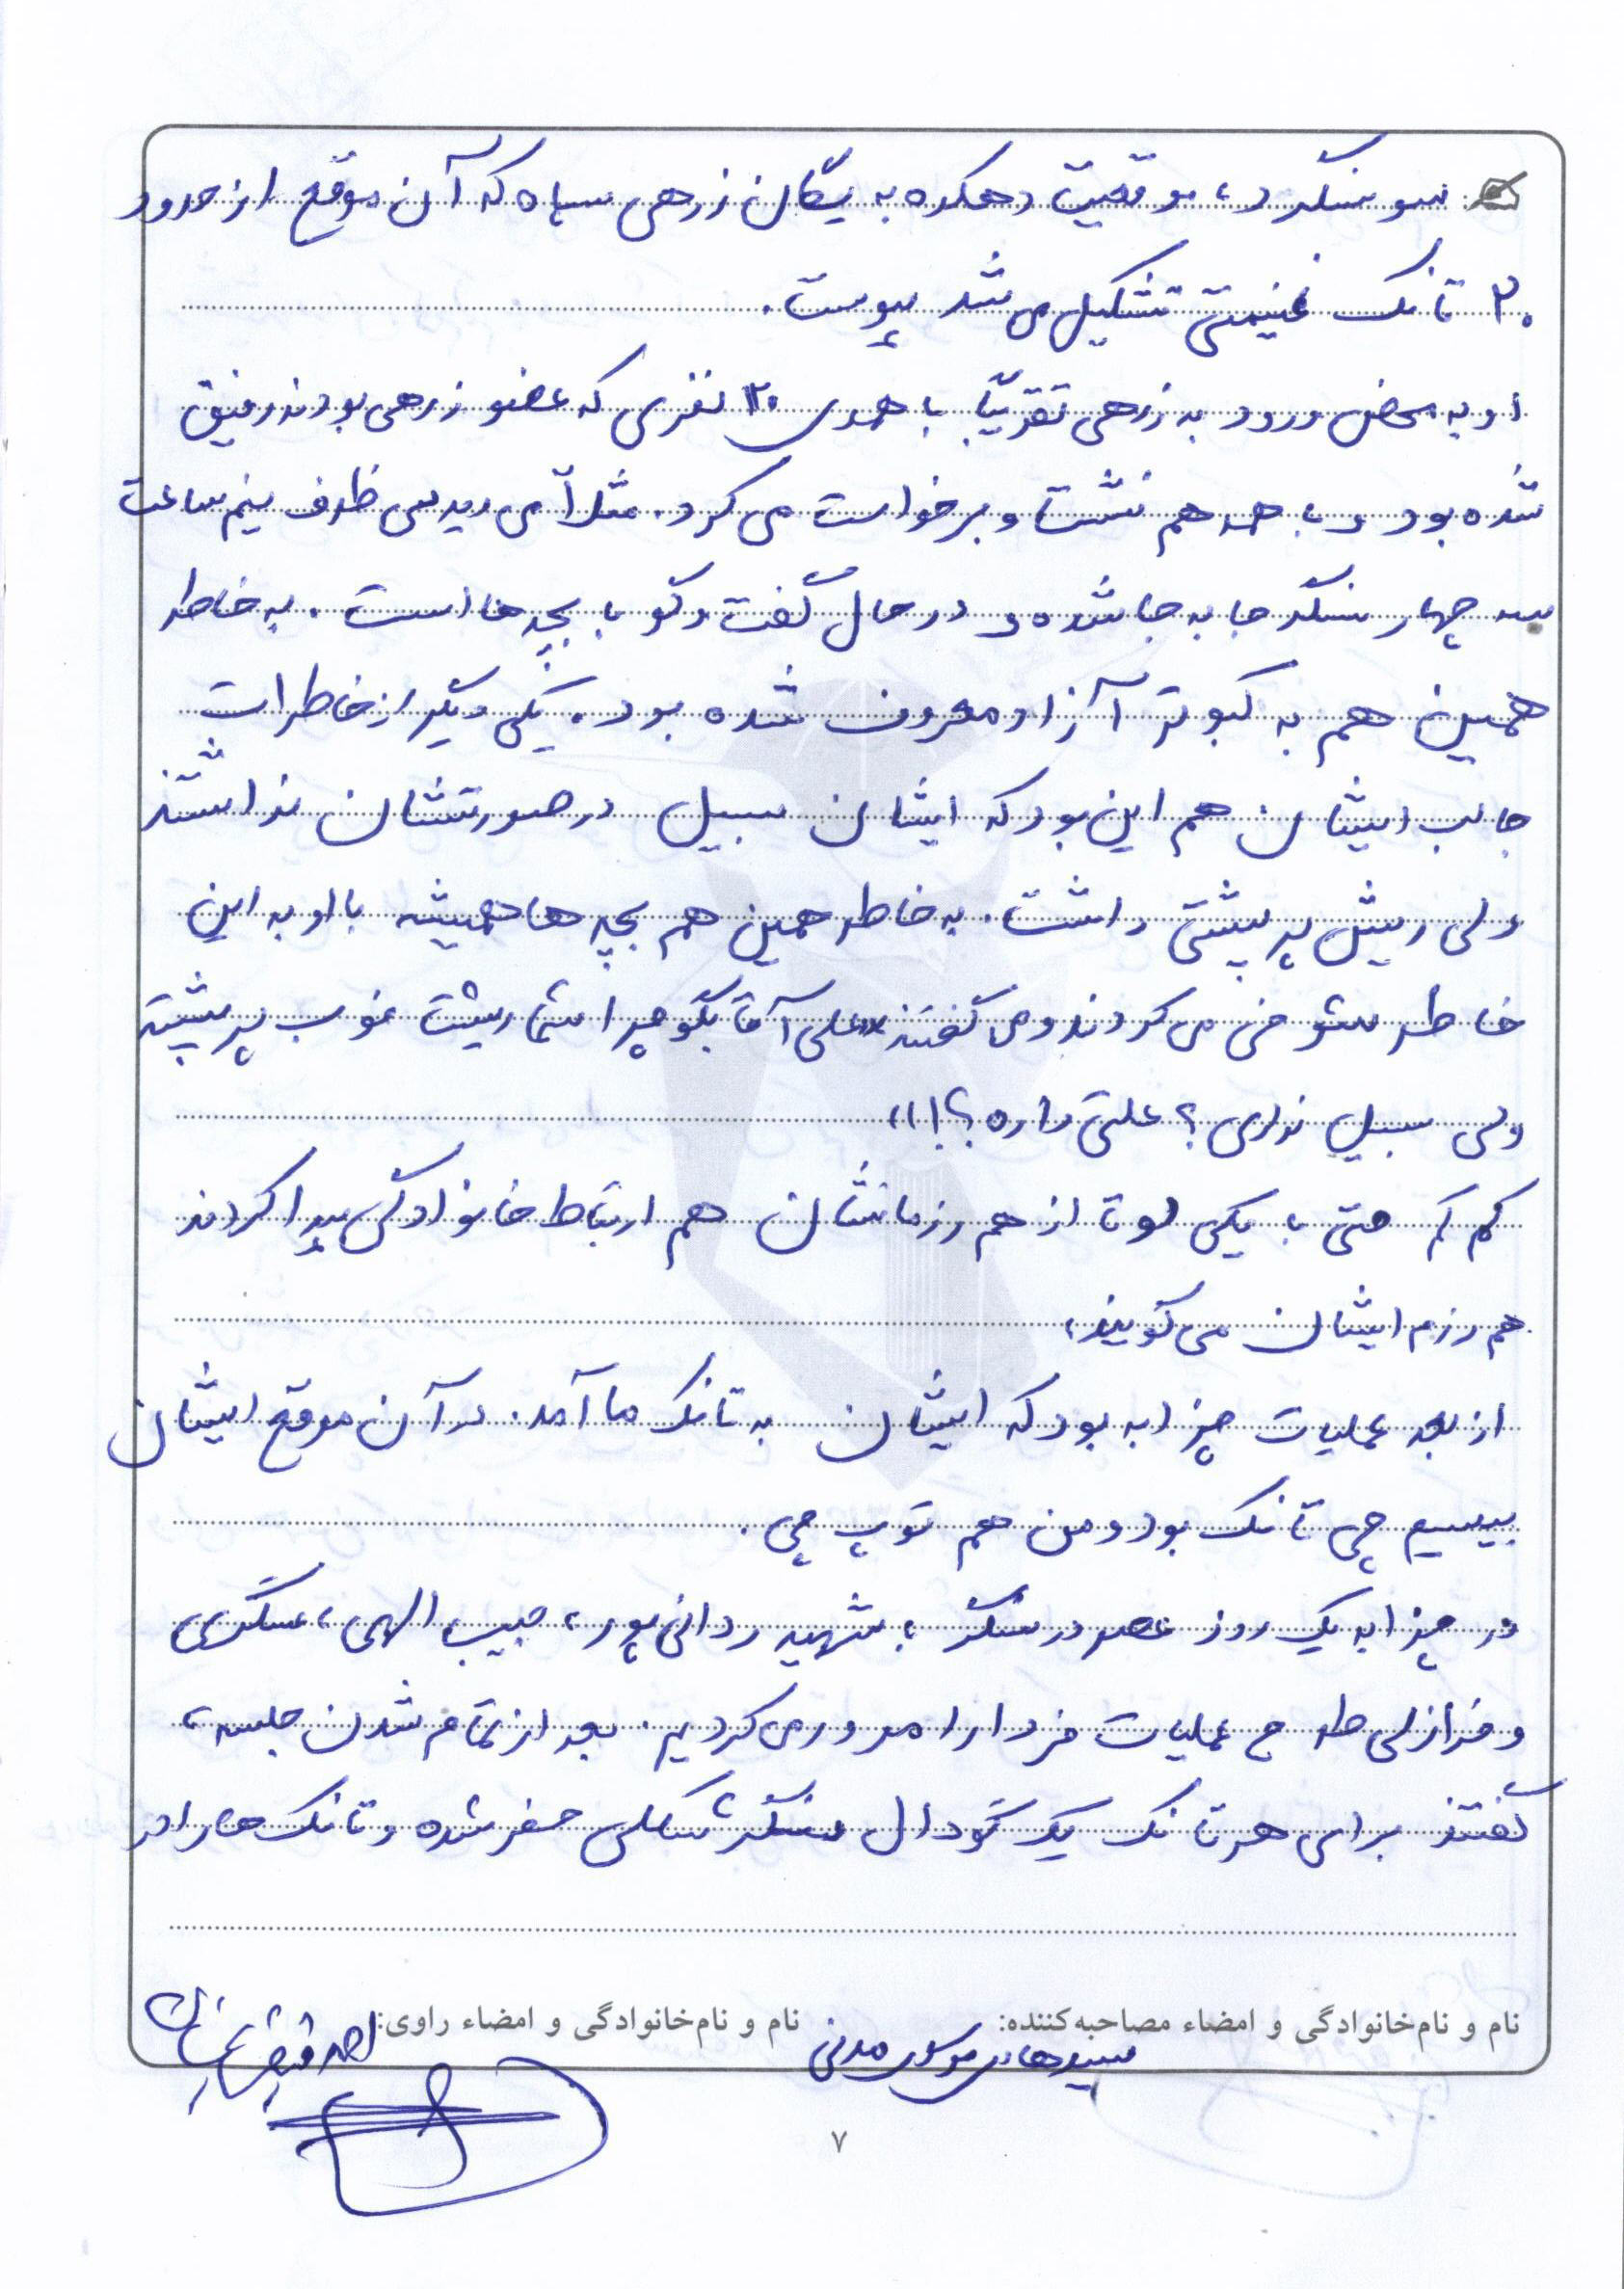 سوسنگرد، موقعیت دهکده به یگان زرهی سپاه که آن موقع از حدود
۲۰ تانک غنیمتی تشکیل می شد پیوست.
او به محض ورود به زرهی تقریباً با همه ی ۱۲۰ نفری که عضو زرهی بودند رفیق
شده بود و با همه هم نشست و برخواست می کرد. مثلاً می دیدی ظرف نیم ساعت
سه چهار سنگر جا به جا شده و در حال گفت و گو با بچه ها است. به خاطر
همین هم به کبوتر آزاد معروف شده بود. یکی دیگر از خاطرات
جالب ایشان هم این بود که ایشان سبیل در صورتشان نداشتند
ولی ریش پر پشتی داشت. به خاطر همین هم بچه ها همیشه با او به این
خاطر شوخی می کردند و می گفتند «علی آقا بگو چرا شما ریشت خوب پر پشته
ولی سبیل نداری؟ علتی داره؟!!»
کم کم حتی با یکی دو تا از هم رزمانشان هم ارتباط خانوادگی پیدا کردند
هم رزم ایشان می گویند،
از بعد عملیات چزابه بود که ایشان به تانک ما آمد. در آن موقع ایشان
بیسیم چی تانک بود و من هم توپ چی.
در چزابه یک روز عصر در سنگر با شهید ردانی پور، حبیب الهی، عسگری
و خزازلی طرح عملیات فردا را مرور می کردیم. بعد از تمام شدن جلسه،
گفتند برای هر تانک یک گودال سنگر شکلی حفر شده و تانک ها را در
نام و نام‌خانوادگی و امضاء مصاحبه‌کننده: سید هادی موسوی مدنی نام و نام‌خانوادگی و امضاء راوی:
۷